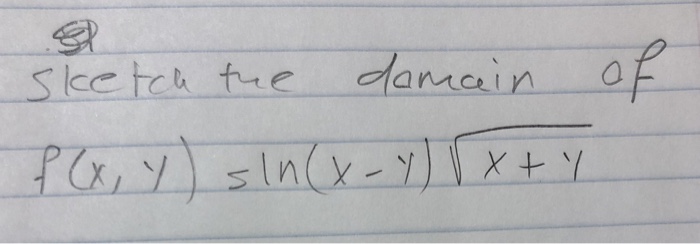 Sketch the domain of
f(x, y) = ln(x - y) √x + y